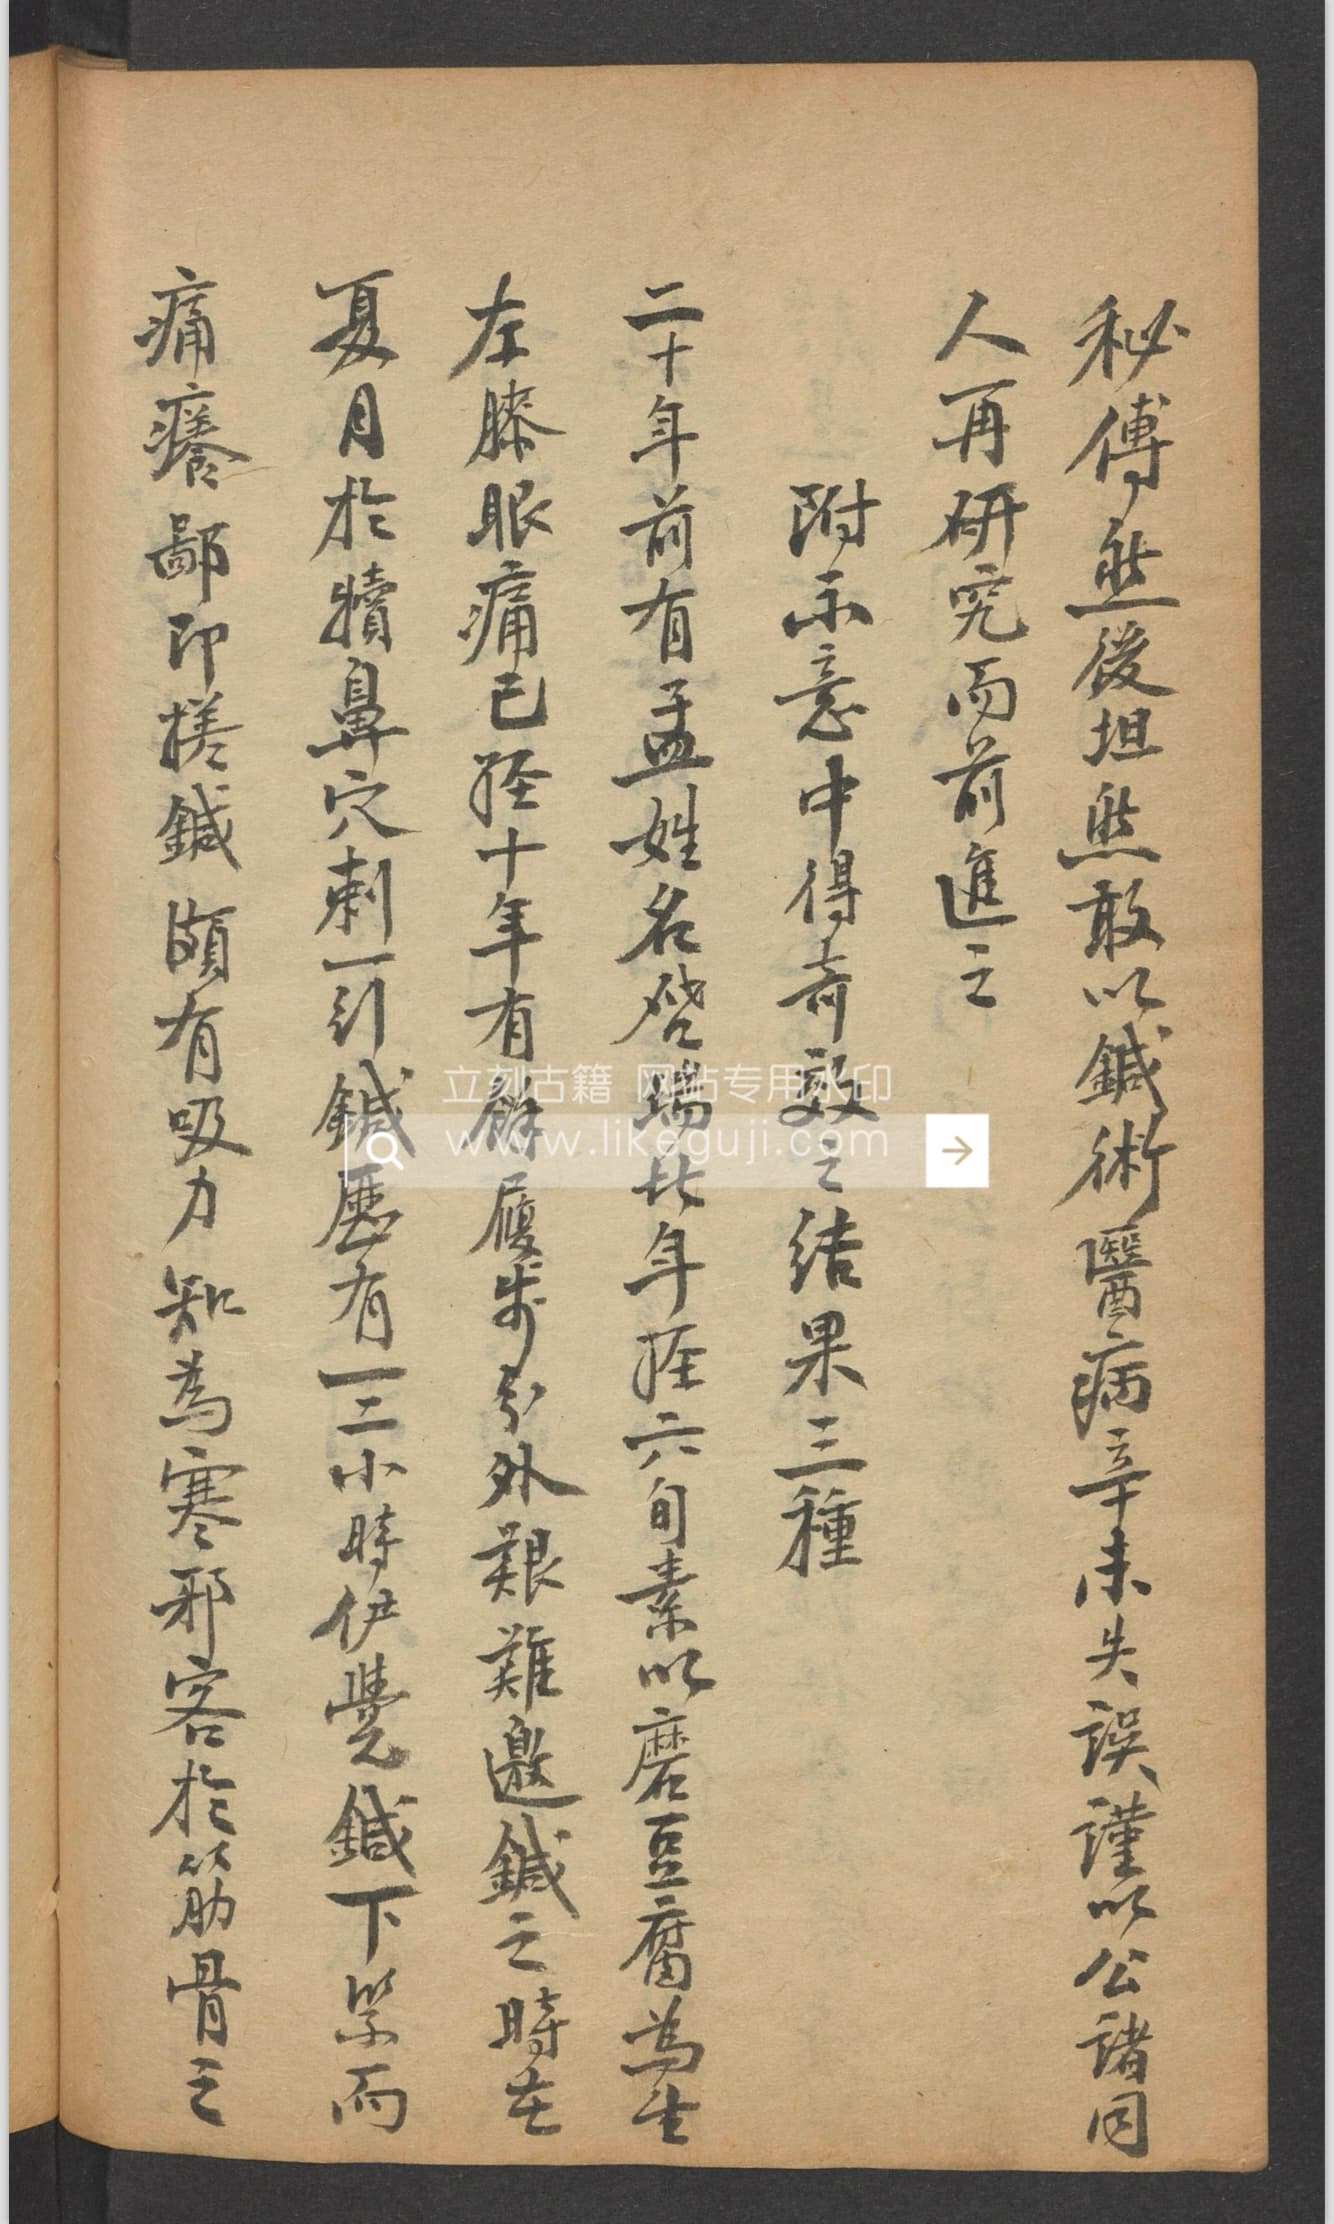 秘傳然後坦然敢以鍼術醫病幸未失誤謹以公諸同
人再研究而前進之
附示意中得奇效之结果三種
二十年前有孟姓名啓瑞北年經六旬素以磨豆腐為生
左膝眼痛已經十年有餘履步分外艱難邀鍼之時在
夏月於犢鼻穴刺一引鍼歷有一二小時伊覺鍼下緊而
痛癢鄙即搓鍼頗有吸力知為寒邪客於筋骨之
立刻古籍 网站专用水印
www.likeguji.com